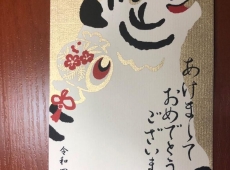 あけまして
おめでとう
ございま
令和